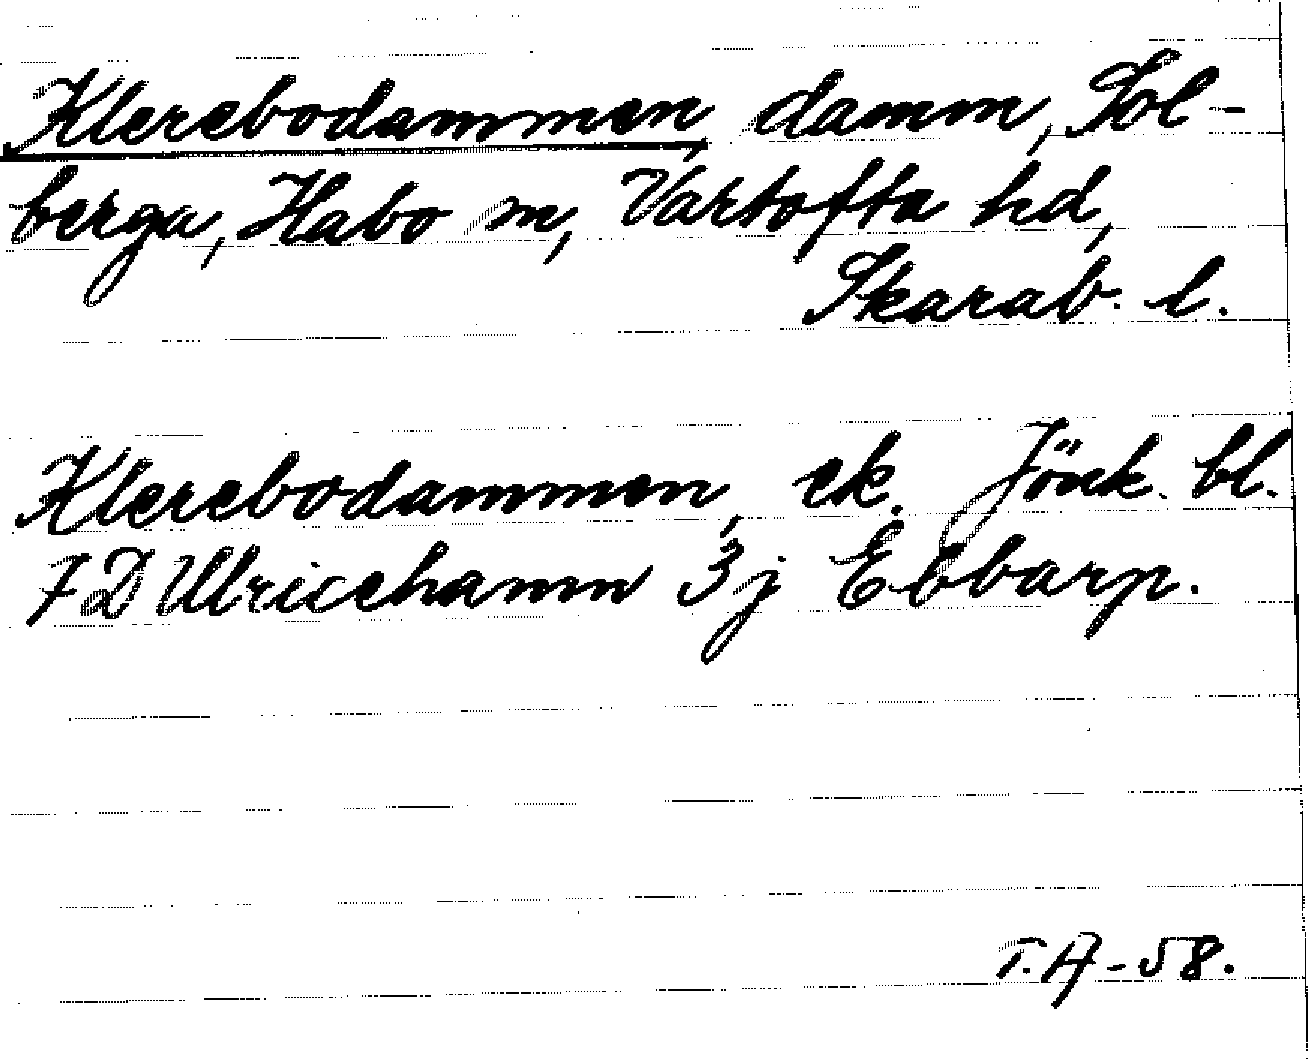 Klerebodammen, damm, Sol-
berga, Habo sn, Vartofta hd,
Skarab. l.
Klerebodammen, ek. Jönk. bl.
7 D Ulricehamn 3j Ebbarp.
T.A-58.